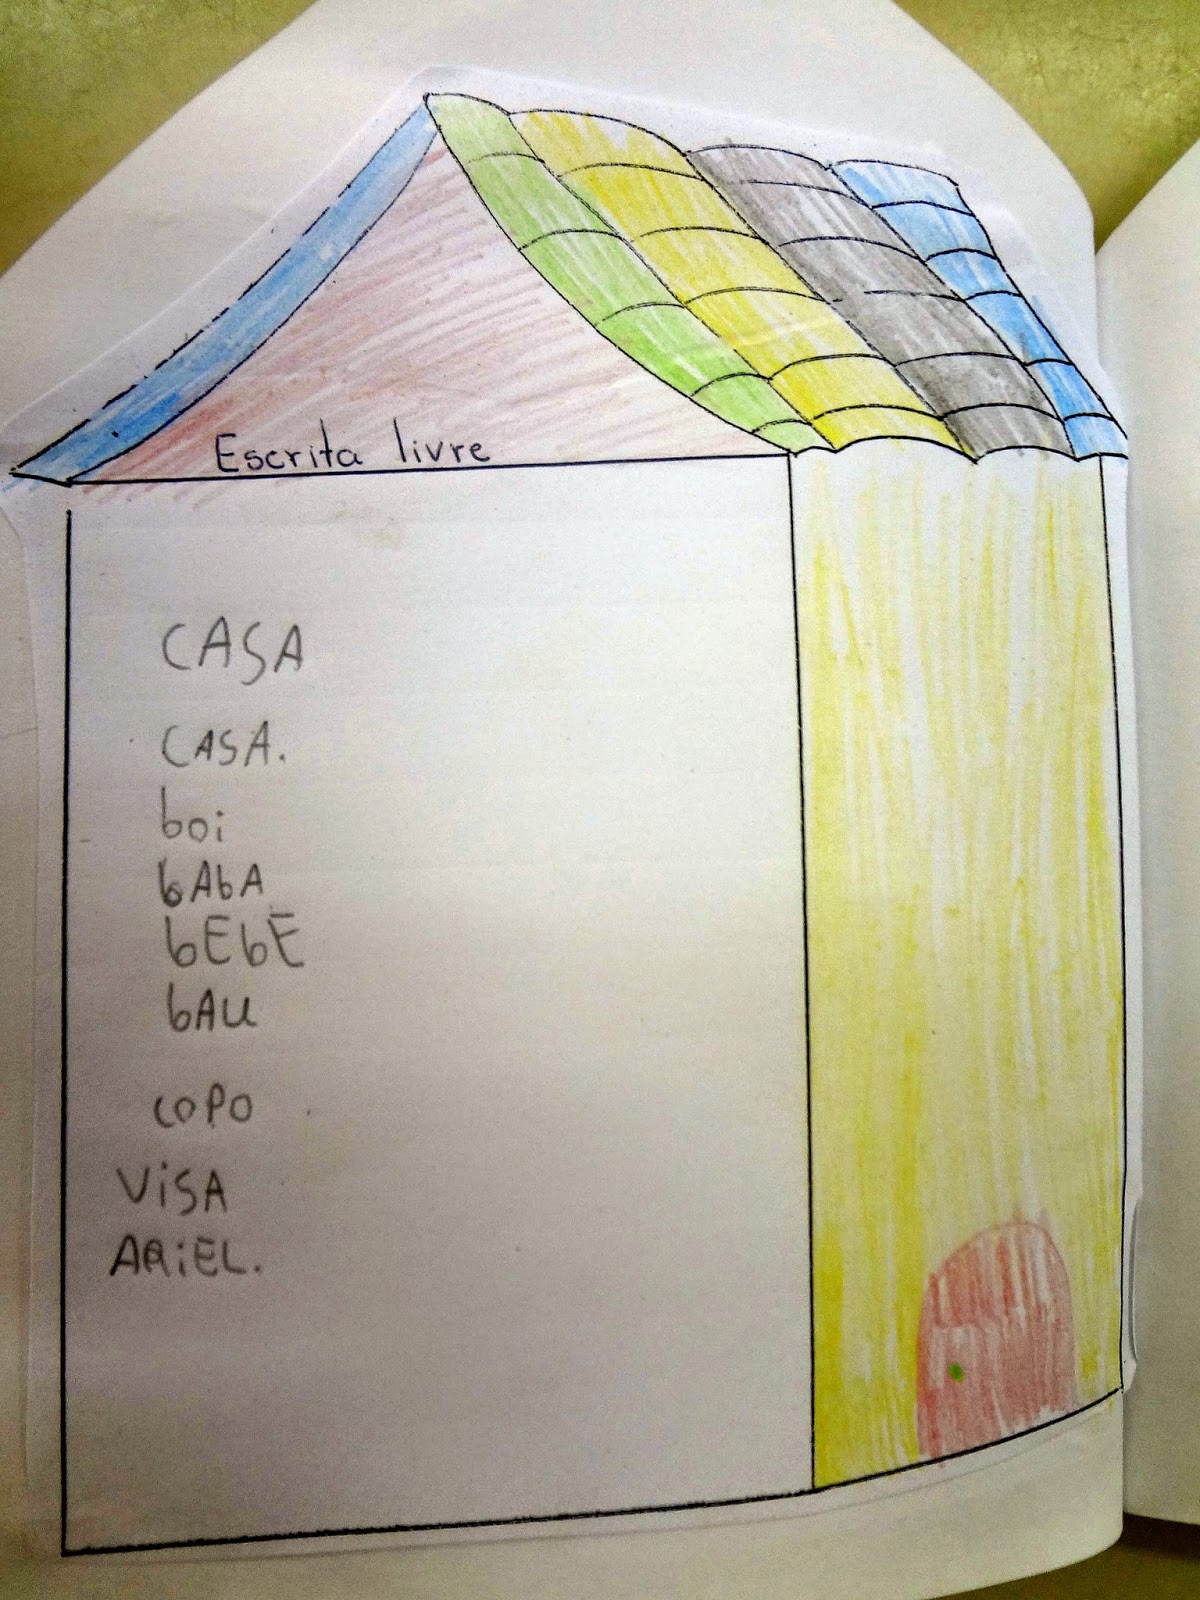 Escrita livre
CASA
CASA.
boi
bAbA
bEbE
bAU
COPO
ViSA
ARiEL.